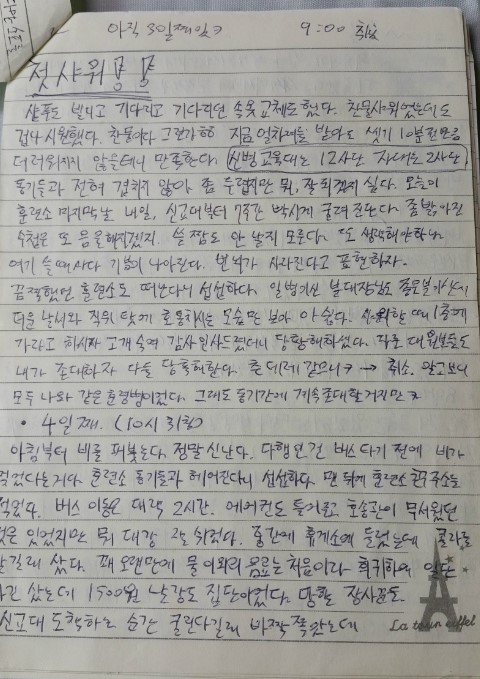 아직 3일째임ㅋ 9:00 취침
첫샤워 ㅎㅎ
샴푸도 빌리고 기다리고 기다리던 속옷 교체도 했다. 찬물샤워였는데도
겁나 시원했다. 찬물이다 그런가 지금 얼차려를 받아도 씻기 10분전만큼
더러워지지 않을테니 만족한다. (신병교육대는 12사단 자대는 2사단)
동기들과 전혀 겹치지 않아 좀 두렵지만 뭐, 잘 되겠지 싶다. 오늘이
훈련소 마지막날 내일, 신교대부터 7주간 빡시게 굴려진단다. 좀 밝아진
수첩은 또 음울해지겠지. 쓸 짬도 안 날지 모른다. 또 생각해야하나
여기 쓸 때마다 기분이 나아진다. 번뇌가 사라진다고 표현하자.
끔찍했던 훈련소도 떠난다니 섭섭하다. 일병이신 분대장님도
더운 날씨와 직위 탓에 호통치시는 모습만 보아 아쉽다. 샤워할 때
가라고 하시자 고개숙여 감사인사드렸더니 당황해하셨다. 자꾸 대원분들도
내가 존대하자 다들 당혹해한다. 츤데레 같으니ㅋ → 취소. 알고보니
모두 나와 같은 훈련병이었다. 그래도 동기간에 계속 존대할거지만ㅋ
• 4일째. (10시 취침)
아침부터 비를 퍼붓는다. 정말 신난다. 다행인건 버스타기 전에 비가
적었다는거다 훈련소 동기들과 헤어진다니 섭섭하다. 맨 뒤게 훈련소 주소는
적었다. 버스 이동은 대략 2시간. 에어컨도 틀어주고 호송관이 무서웠던
것은 있었지만 뭐 대강 쉬었다. 중간에 휴게소에 들렀는데 콜라를
팔길래 샀다. 꽤 오랜만에 물 이외의 음료는 처음이라 희귀하여 일단
사긴 샀는데 1500원 난강도 집단이었다. 망할 장사꾼들
신교대 도착하는 순간 굴린다길래 바짝 쫄았는데
La tour eiffel